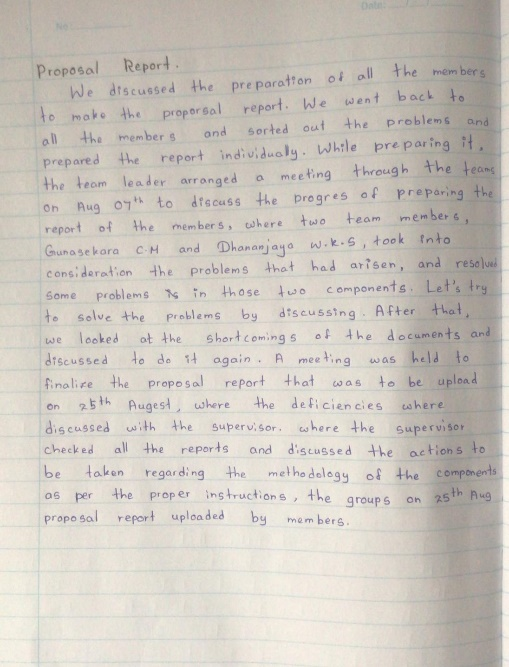 Date:
No:
Proposal Report.
We discussed the preparation of all the members
to make the proporsal report. We went back to
all the members and sorted out the problems and
prepared the report individually. While preparing it,
the team leader arranged a meeting through the teams
on Aug 07th to discuss the progres of preparing the
report of the members, where two team members,
Gunasekara C.M and Dhananjaya W.K.S, took into
consideration the problems that had arisen, and resolved
some problems in those two components. Let's try
to solve the problems by discussing. After that,
we looked at the shortcomings of the documents and
discussed to do it again. A meeting was held to
finalize the proposal report that was to be upload
on 25th Augest, where the deficiencies where
discussed with the supervisor. where the supervisor
checked all the reports and discussed the actions to
be taken regarding the methodology of the components
as per the proper instructions, the groups on 25th Aug
proposal report uploaded by members.